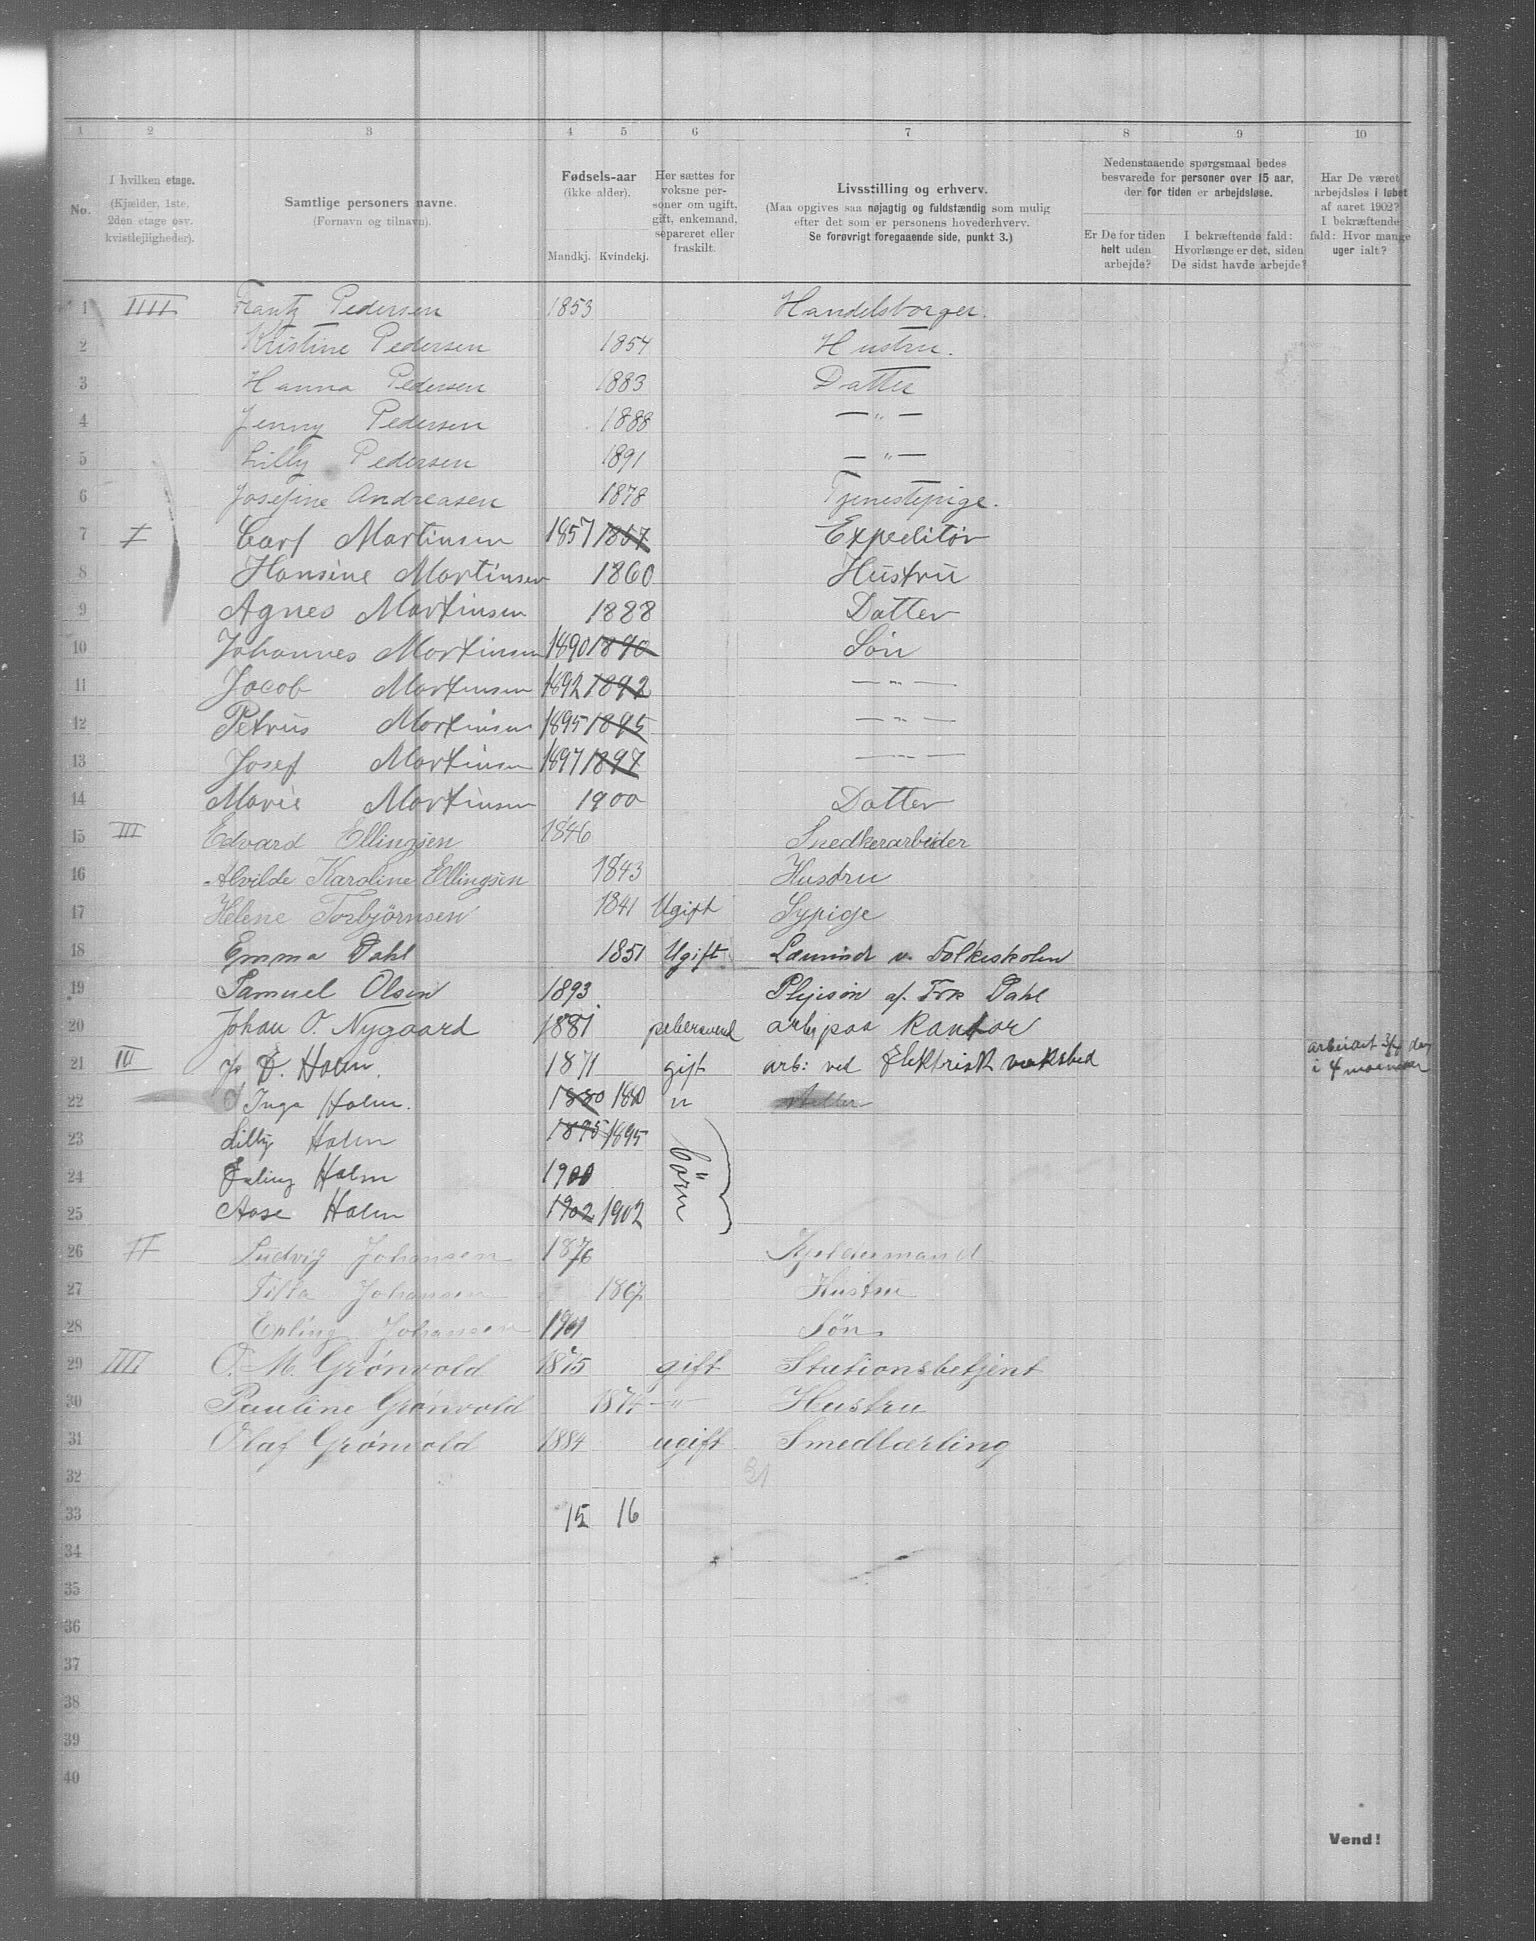 1 2 3 4 5 6 7 8 9 10
No.
I hvilken etage.
(Kjælder, 1ste,
2den etage osv.
kvistlejligheder).
Samtlige personers navne.
(Fornavn og tilnavn).
Fødsels-aar
(ikke alder).
Mandkj. Kvindekj.
Her sættes for
voksne per-
soner om ugift,
gift, enkemand,
separeret eller
fraskilt.
Livsstilling og erhverv.
(Maa opgives saa nøjagtig og fuldstændig som mulig
efter det som er personens hovederhverv.
Se forøvrigt foregaaende side, punkt 3.)
Nedenstaaende spørgsmaal bedes
besvarede for personer over 15 aar,
der for tiden er arbejdsløse.
Er De for tiden
helt uden
arbejde?
I bekræftende fald:
Hvorlænge er det, siden
De sidst havde arbejde?
Har De været
arbejdsløs i løbet
af aaret 1902?
I bekræftende
fald: Hvor mange
uger ialt?
1 IIII Frantz Pedersen 1853 Handelsborger.
2 Kristine Pedersen 1854 Hustru.
3 Hanna Pedersen 1883 Datter
4 Jenny Pedersen 1888 — " —
5 Lilly Pedersen 1891 — " —
6 Josefine Andreasen 1878 Tjenestepige.
7 I Carl Martinsen 1857 1857 Expeditør
8 Hansine Martinsen 1860 Hustru
9 Agnes Martinsen 1888 Datter
10 Johannes Martinsen 1890 1890 Søn
11 Jacob Martinsen 1892 1892 — " —
12 Petrus Martinsen 1895 1895 — " —
13 Josef Martinsen 1897 1897 — " —
14 Marie Martinsen 1900 Datter
15 III Edvard Ellingsen 1846 Snedkerarbeider
16 Alvilde Karoline Ellingsen 1843 Hustru
17 Helene Torbjørnsen 1841 Ugift Sypige
18 Emma Dahl 1851 Ugift Lærerinde v. Folkeskolen
19 Samuel Olsen 1893 Plejesøn af Frk Dahl
20 Johan O. Nygaard 1881 pebersvend arb paa Kontor
21 III J. E. Holm. 1871 gift arb: ved Elektrisk værksted arbeidet 3/4 dag
i 4 maaneder
22 Inga Holm. 1880 1880 "
23 Lilly Holm 1895 1895 börn
24 Erling Holm 1900
25 Aase Holm 1902 1902
26 II Ludvig Johansen 1876 Kjeldermand
27 Johansen 1867 Hustru
28 Erling Johansen 1901 Søn
29 IIII O. M. Grönvold 1875 gift Stationsbetjent
30 Pauline Grönvold 1874 — " Hustru
31 Olaf Grönvold 1884 ugift Smedlærling
32 31
33 15 16
34
35
36
37
38
39
40
Vend!